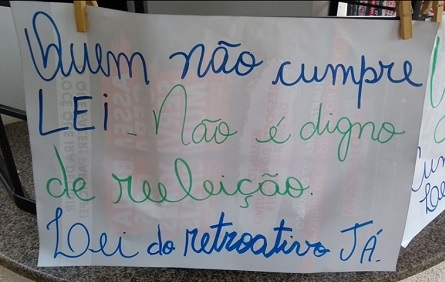 Quem não cumpre
LEI - Não é digno
de reeleição.
Lei do retroativo JÁ.